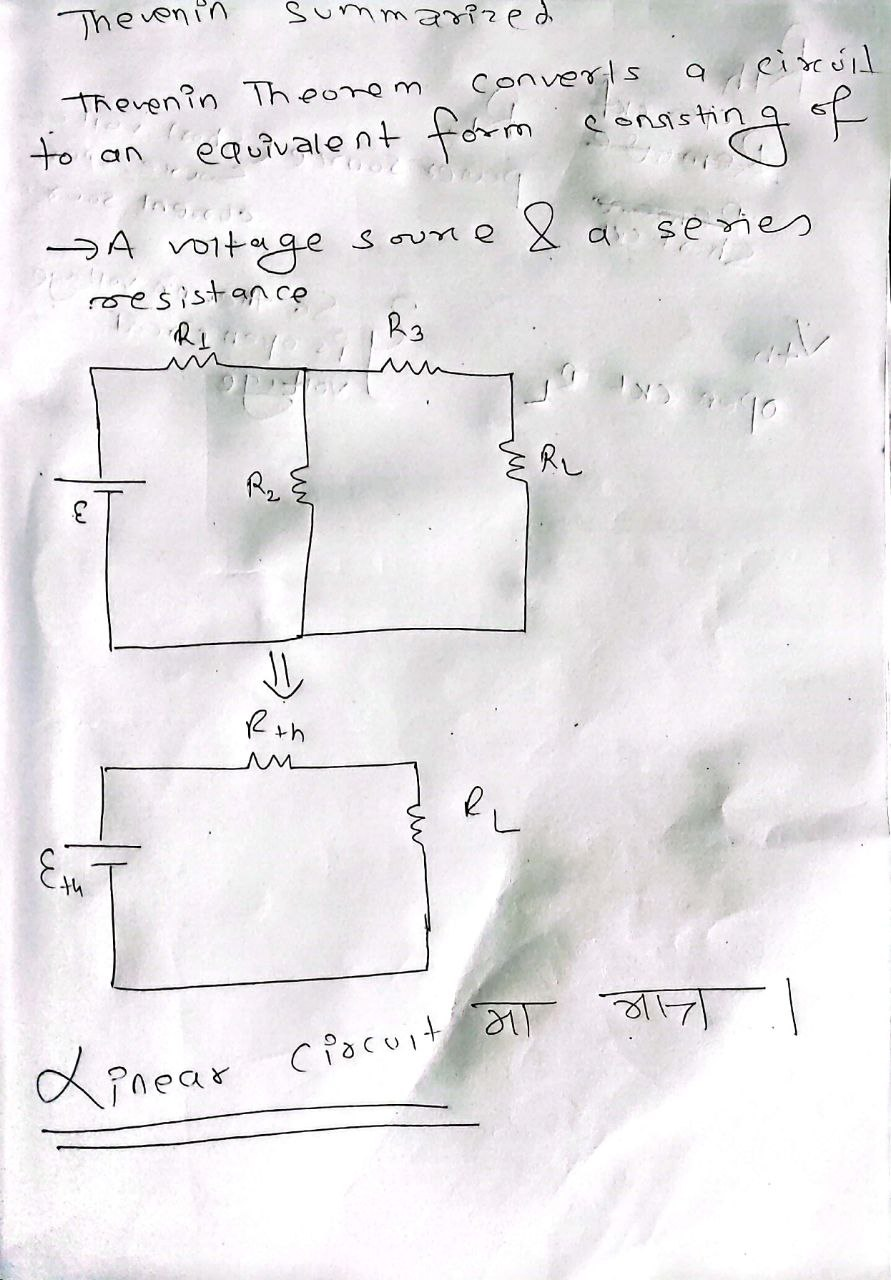 Thevenin summarized
Thevenin Theorem converts a circuit
to an equivalent form consisting of
→ A voltage source & a series
resistance
R1 R3
R2 RL
ε
⇓
Rth
RL
εth
Linear circuit मा मात्र ।